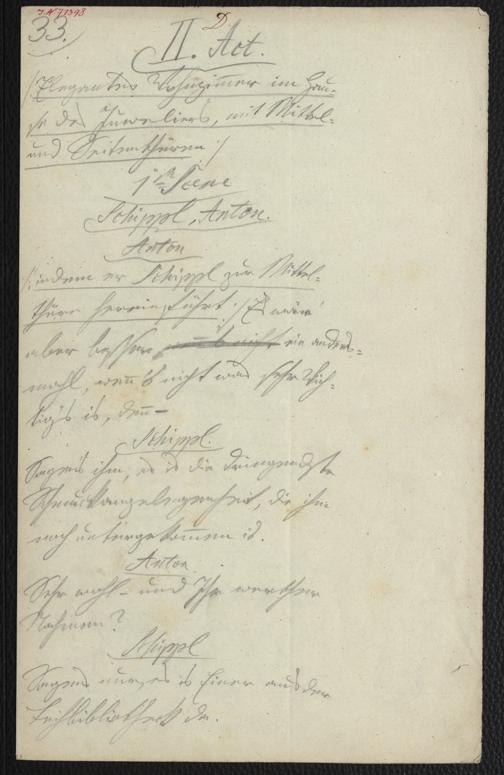 I.N. 71393
33.
D
II. Act.
/:Elegantes Wohnzimmer im Hau-
se des Juweliers, mit Mittel-
und Seitenthüren:/
1te Scene
Schippl, Anton.
Anton
/:indem er Schippl zur Mittel-
thüre hereinführt:/ Es wär'
aber besser, ein anders-
mahl, wenn's nicht was sehr Wich-
tig's is, denn –
Schippl.
Sagen's ihm, es is die dringendste
Schmuckangelegenheit, die ihm
noch untergekommen is.
Anton.
Sehr wohl – und Ihr werther
Nahmen?
Schippl
Sagens nur, es is Einer aus der
Leihbibliothek da.